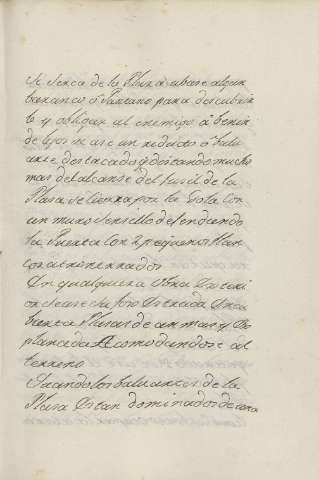 Si serca de la Plasa ubiese algun
barranco ô Pantano para descubrir
lo y obligar al enemigo â benir
de lejos se ase un reducto ô balu
arte destacado y distando mucho
mas del alcanse del fusil de la
Plasa se sierra por la Gola con
un muro sensillo defendiendo
la Puerta con 2 pequeños flan
cos atrincherados
En qualquiera obra Exteri
or se ase su foso Estrada Encu
bierta Plasas de armas y Es
planada Acomodandose al
terreno
Quando los baluartes de la
Plasa Estan dominados de una